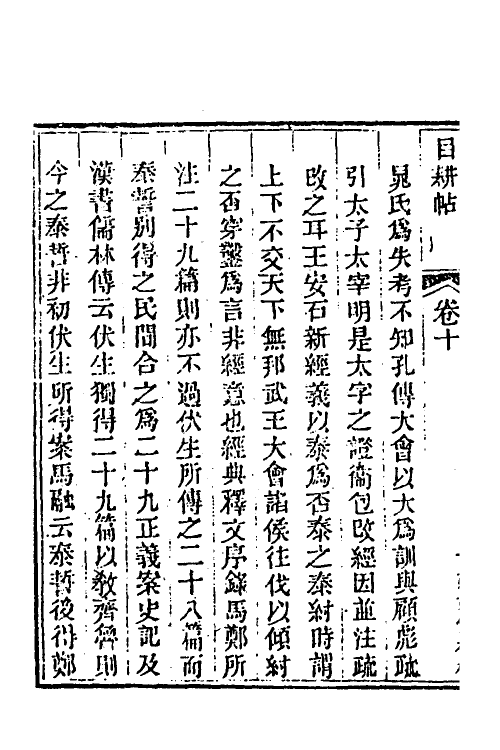 目耕帖
卷十
晁氏爲失考不知孔傳大會以大爲訓與顧彪
引太子太宰明是太字之證衞包改經因並注疏
改之耳王安石新經義以泰爲否泰之泰紂時謂
上下不交天下無邦武王大會諸侯往伐以傾紂
之否穿鑿爲言非經意也經典釋文序錄馬鄭所
注二十九篇則亦不過伏生所傳之二十八篇而
泰誓别得之民間合之爲二十九正義案史記及
漢書儒林傳云伏生獨得二十九篇以敎齊魯則
今之泰誓非初伏生所得案馬融云泰誓後得鄭